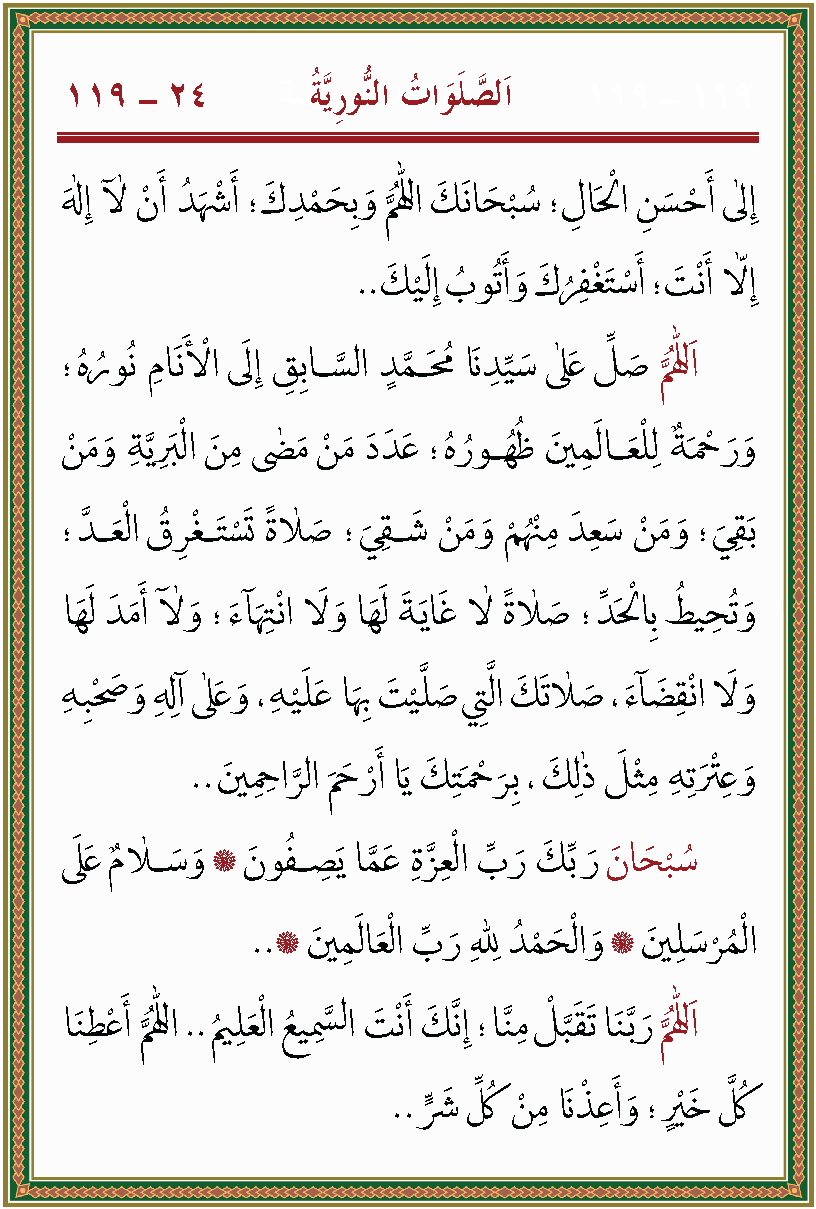 اَلصَّلَوَاتُ النُّورِيَّةُ ٢٤ – ١١٩
إِلٰى أَحْسَنِ الْحَالِ ؛ سُبْحَانَكَ اللّٰهُمَّ وَبِحَمْدِكَ ؛ أَشْهَدُ أَنْ لَآ إِلٰهَ
إِلَّا أَنْتَ ؛ أَسْتَغْفِرُكَ وَأَتُوبُ إِلَيْكَ..
اَللّٰهُمَّ صَلِّ عَلٰى سَيِّدِنَا مُحَمَّدٍ السَّابِقِ إِلَى الْأَنَامِ نُورُهُ ؛
وَرَحْمَةٌ لِلْعَالَمِينَ ظُهُورُهُ ؛ عَدَدَ مَنْ مَضٰى مِنَ الْبَرِيَّةِ وَمَنْ
بَقِيَ ؛ وَمَنْ سَعِدَ مِنْهُمْ وَمَنْ شَقِيَ ؛ صَلَاةً تَسْتَغْرِقُ الْعَدَّ ؛
وَتُحِيطُ بِالْحَدِّ ؛ صَلَاةً لَا غَايَةَ لَهَا وَلَا انْتِهَآءَ ؛ وَلَآ أَمَدَ لَهَا
وَلَا انْقِضَآءَ ، صَلَاتَكَ الَّتِي صَلَّيْتَ بِهَا عَلَيْهِ ، وَعَلٰى آلِهِ وَصَحْبِهِ
وَعِتْرَتِهِ مِثْلَ ذٰلِكَ ، بِرَحْمَتِكَ يَا أَرْحَمَ الرَّاحِمِينَ..
سُبْحَانَ رَبِّكَ رَبِّ الْعِزَّةِ عَمَّا يَصِفُونَ ۞ وَسَلَامٌ عَلَى
الْمُرْسَلِينَ ۞ وَالْحَمْدُ لِلّٰهِ رَبِّ الْعَالَمِينَ ۞..
اَللّٰهُمَّ رَبَّنَا تَقَبَّلْ مِنَّا ؛ إِنَّكَ أَنْتَ السَّمِيعُ الْعَلِيمُ.. اللّٰهُمَّ أَعْطِنَا
كُلَّ خَيْرٍ ؛ وَأَعِذْنَا مِنْ كُلِّ شَرٍّ..